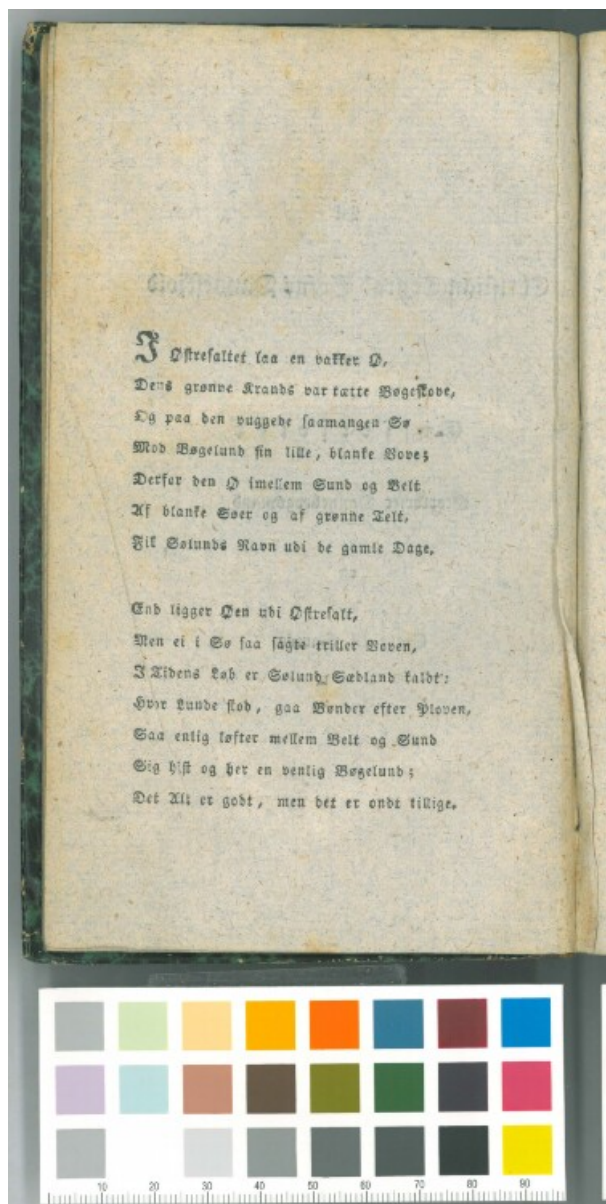 I Østresaltet laa en vakker Ø,
Dens grønne Krands var tætte Bøgeskove,
Og paa den vuggede saamangen Sø
Mod Bøgelund sin lille, blanke Vove;
Derfor den Ø imellem Sund og Belt
Af blanke Søer og af grønne Telt,
Fik Sølunds Navn udi de gamle Dage.
End ligger Øen udi Østresalt,
Men ei i Sø saa sagte triller Voven,
I Tidens Løb er Sølund Sædland kaldt:
Hvor Lunde stod, gaa Bønder efter Ploven,
Saa enlig løfter mellem Belt og Sund
Sig hist og her en venlig Bøgelund;
Det Alt er godt, men det er ondt tillige.
10 20 30 40 50 60 70 80 90